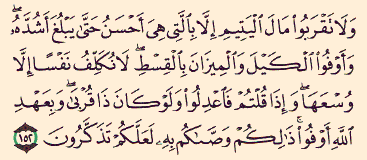 وَلَا تَقْرَبُوا۟ مَالَ ٱلْيَتِيمِ إِلَّا بِٱلَّتِى هِىَ أَحْسَنُ حَتَّىٰ يَبْلُغَ أَشُدَّهُۥ ۖ
وَأَوْفُوا۟ ٱلْكَيْلَ وَٱلْمِيزَانَ بِٱلْقِسْطِ ۖ لَا نُكَلِّفُ نَفْسًا إِلَّا
وُسْعَهَا ۖ وَإِذَا قُلْتُمْ فَٱعْدِلُوا۟ وَلَوْ كَانَ ذَا قُرْبَىٰ ۖ وَبِعَهْدِ
ٱللَّهِ أَوْفُوا۟ ۚ ذَٰلِكُمْ وَصَّىٰكُم بِهِۦ لَعَلَّكُمْ تَذَكَّرُونَ ١٥٢